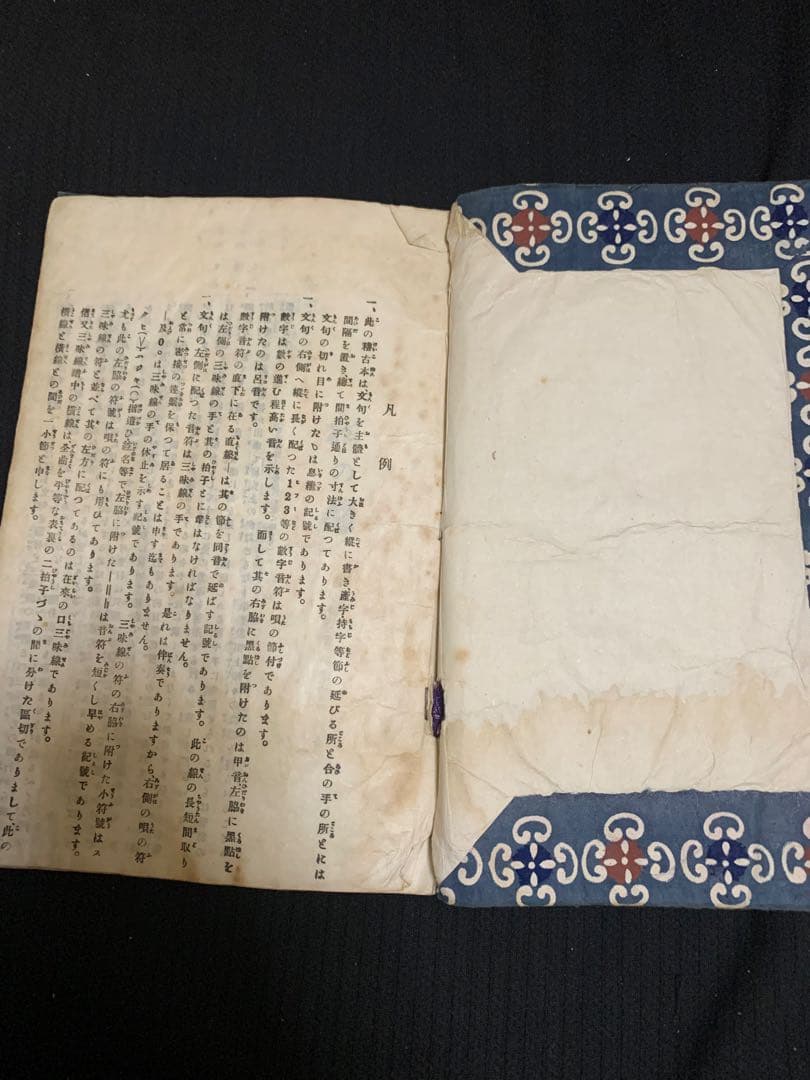 凡例
一、此の稽古本は文句を主體として大きく縱に書き產字持字等節の延びる所と合の手の所とには
間隔を置き、總て間拍子通りの寸法に配つてあります。
文句の切れ目に附けたゝは息繼の記號であります。
一、文句の右側へ縱に長く配つた123等の數字音符は唄の節付であります。
數字は數の進む程高い音を示します。而して其の右脇に黑點を附けたのは甲音左脇に黑點を
附けたのは呂音です。
數字音符の直下に在る直線―は其の節を同音で延ばす記號であります。此の線の長短間取り
は左側の三味線の手と其の拍子とに牽はなければなりません。
一、文句の左側に配つた音符は三味線の手であります。是れは伴奏でありますから右側の唄の符
と常に密接の連繫を保つて居ることは申す迄もありません。
―及0。は三味線の手の休止を示す記號であります。三味線の符の右脇に附けた小符號はス
クヒ(V)ハジキ(∩)指遣ひ絃名等で左脇に附けた―=は音符を短くし早める記號であります。
尤も此の左脇の符號は唄の符にも用ひてあります。
三味線の符と並べて其の左方に配つてあるのは在來の口三味線であります。
偖又三味線譜中の橫線は全曲を平等な表裏の二拍子づゝの間に分けた區切でありまして此の
橫線と橫線との間を一小節と申します。